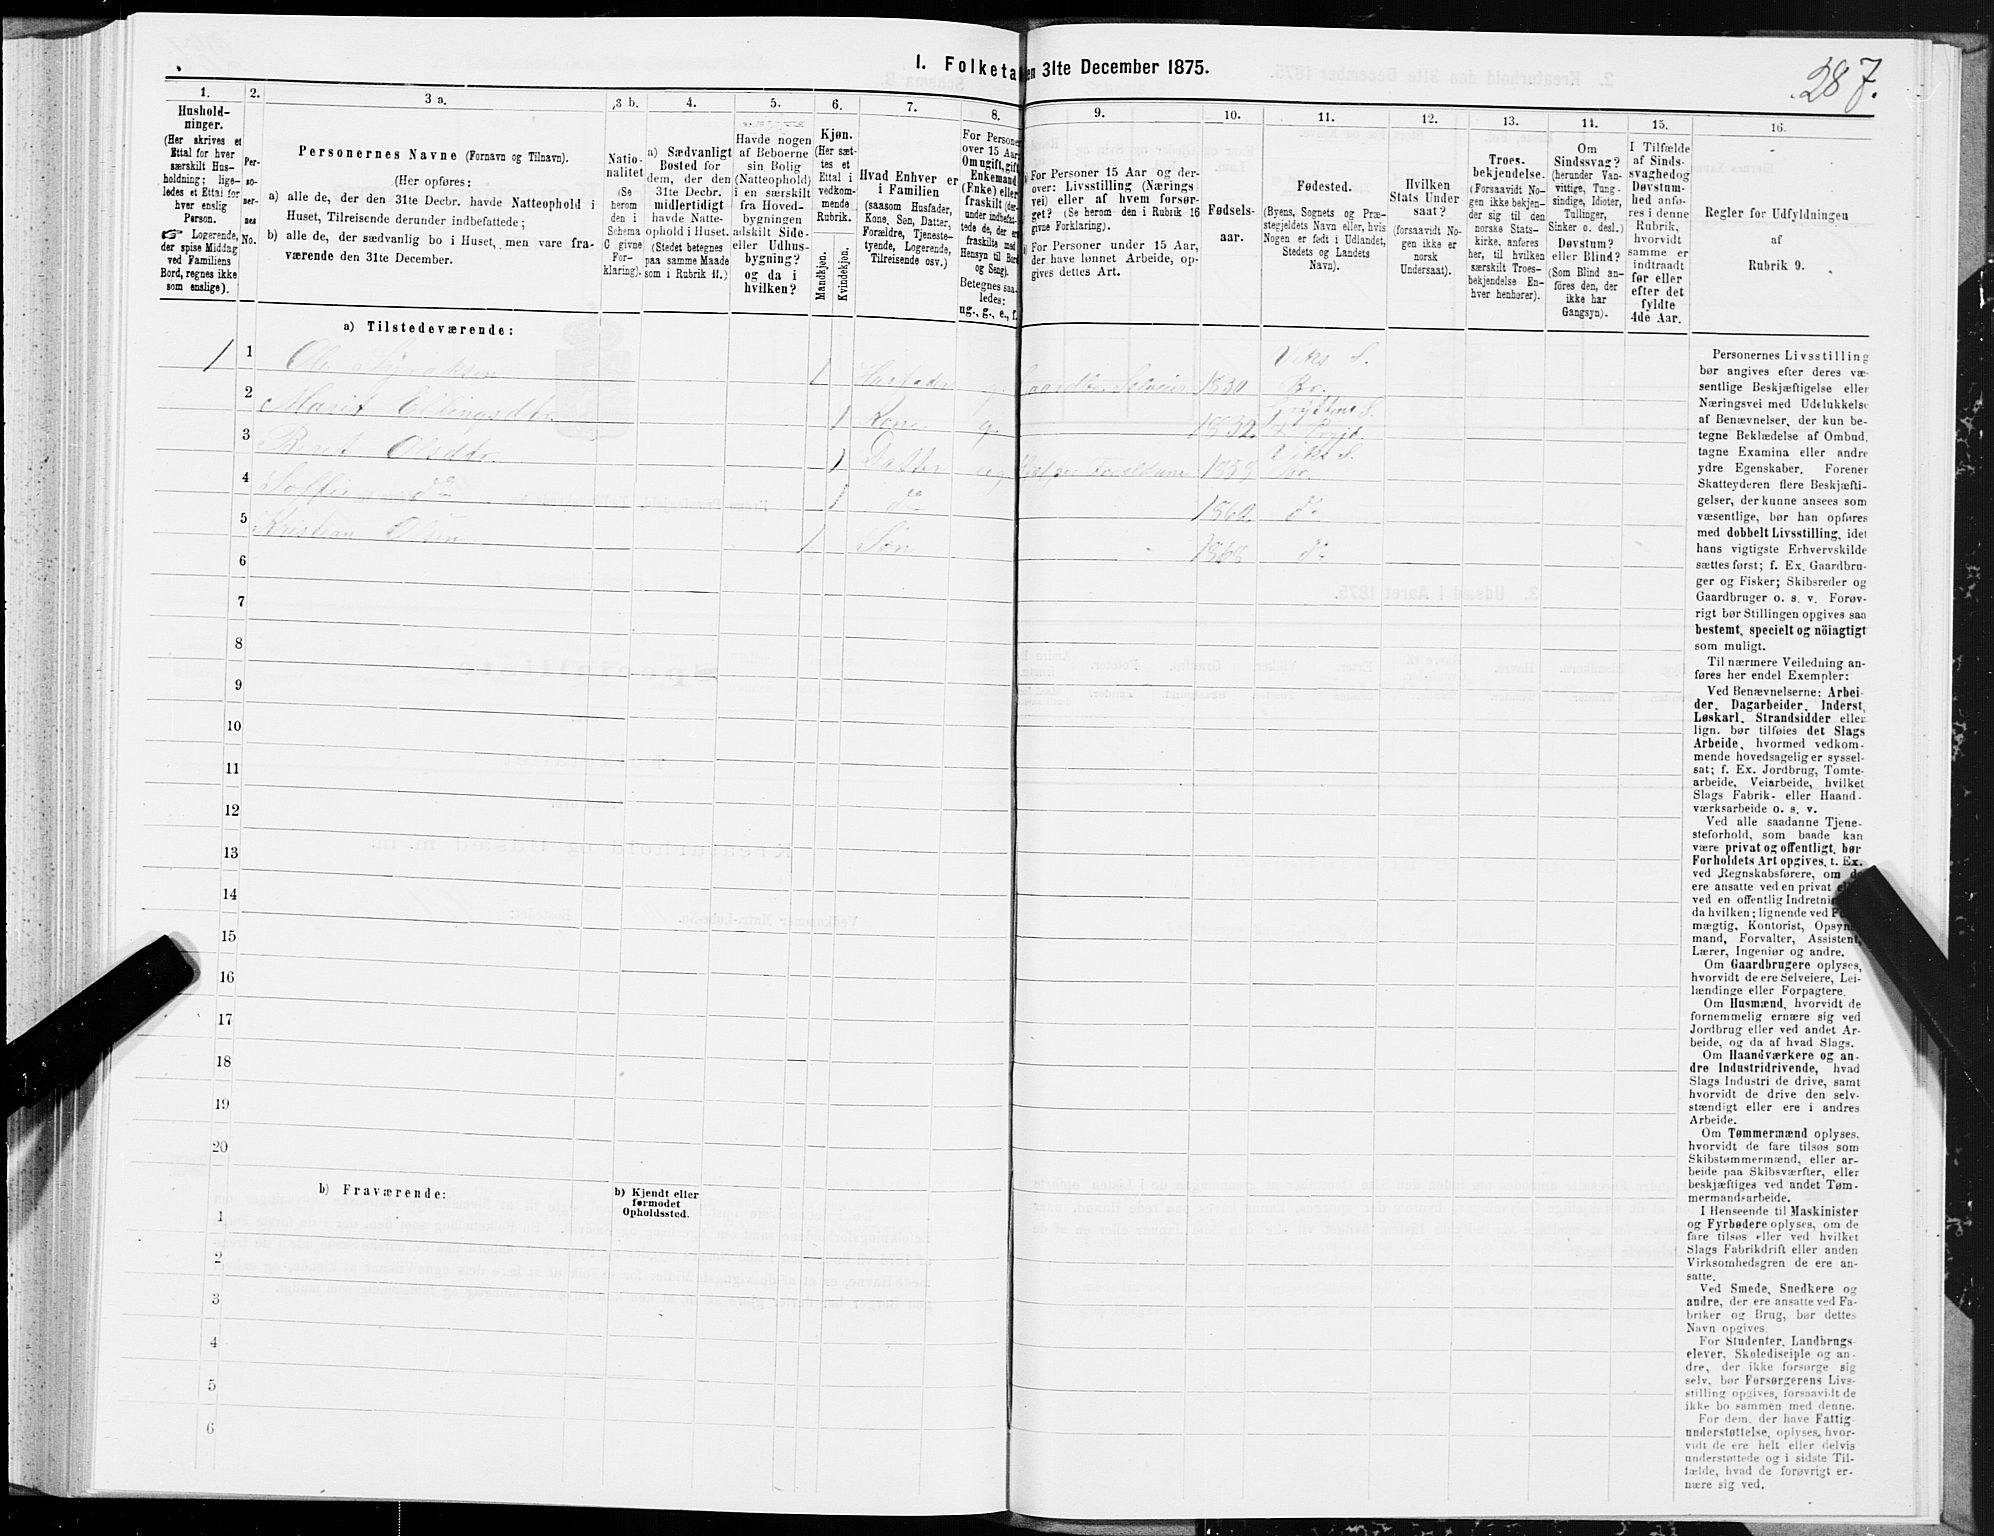 I. Folketa en 31te December 1875.
287.
1.
Hushold-
ninger.
(Her skrives et
Ettal for hver
særskilt Hus-
holdning; lige-
ledes et Ettal for
hver enslig
Person.
☞ Logerende,
der spise Middag
ved Familiens
Bord, regnes ikke
som enslige).
2.
Per-
so-
ner-
nes
No.
3 a.
Personernes Navne (Fornavn og Tilnavn).
(Her opføres:
a) alle de, der den 31te Decbr. havde Natteophold i
Huset, Tilreisende derunder indbefattede;
b) alle de, der sædvanlig bo i Huset, men vare fra-
værende den 31te December.
3 b.
Natio-
nalitet
(Se
herom
den i
Schema
C givne
For-
klaring).
4.
a) Sædvanligt
Bosted for
dem, der den
31te Decbr.
midlertidigt
havde Natte-
ophold i Huset.
(Stedet betegnes
paa samme Maade
som i Rubrik 11.)
5.
Havde nogen
af Beboerne
sin Bolig
(Natteophold)
i en særskilt
fra Hoved-
bygningen
adskilt Side-
eller Udhus-
bygning?
og da i
hvilken?
6.
Kjøn.
(Her sæt-
tes et
Ettal i
vedkom-
mende
Rubrik.
Mandkjøn.
Kvindekjøn.
7.
Hvad Enhver er
i Familien
(saasom Husfader,
Kone, Søn, Datter,
Forældre, Tjeneste-
tyende, Logerende,
Tilreisende osv.)
8.
For Persone
over 15 Aar
Om ugift, gift
Enkemand
(Enke) eller
fraskilt (der-
under indbefat-
tede de, der er
fraskilte med
Hensyn til Bord
og Seng).
Betegnes saa-
ledes:
ug., g., e., f.
9.
For Personer 15 Aar og der-
over: Livsstilling (Nærings
vei) eller af hvem forsør-
get? (Se herom den i Rubrik 16
givne Forklaring).
For Personer under 15 Aar,
der have lønnet Arbeide, op-
gives dettes Art.
10.
Fødsels-
aar.
11.
Fødested.
(Byens, Sognets og Præ-
stegjeldets Navn eller, hvis
Nogen er født i Udlandet,
Stedets og Landets
Navn).
12.
Hvilken
Stats Under
saat?
(forsaavidt No-
gen ikke er
norsk
Undersaat).
13.
Troes-
bekjendelse.
(Forsaavidt No-
gen ikke bekjen-
der sig til den
norske Stats-
kirke, anføres
her, til hvilken
særskilt Troes-
bekjendelse En-
hver henhører).
14.
Om
Sindssvag?
(herunder Van-
vittige, Tung-
sindige, Idioter,
Tullinger,
Sinker o. desl.)
Døvstum?
eller Blind?
(Som Blind an-
føres den, der
ikke har
Gangsyn).
15.
I Tilfælde
af Sinds-
svaghed og
Døvstum-
hed anfø-
res i denne
Rubrik,
hvorvidt
samme er
indtraadt
før eller
efter det
fyldte
4de Aar.
16.
Regler for Udfyldningen
af
Rubrik 9.
a) Tilstedeværende:
1 1 Ole 1 g. Selveier 1830 Viks S.
Br.
2 Marit Ellingsdtr 1 Kone g. 1832. Gryttens S.
3 Olsdtr. 1 Datter ug. 1858 Viks S.
Br.
4 do 1 do 1860. do
5 Kristian Olsen 1 Søn 1868 do
6
7
8
9
10
11
12
13
14
15
16
17
18
19
20
b) Fraværende:
b) Kjendt eller
formodet
Opholdssted.
1
2
3
4
5
6
Personernes Livsstilling
bør angives efter deres væ-
sentlige Beskjæftigelse eller
Næringsvei med Udelukkelse
af Benævnelser, der kun be-
tegne Beklædelse af Ombud,
tagne Examina eller andre
ydre Egenskaber. Forener
Skatteyderen flere Beskjæfti-
gelser, der kunne ansees som
væsentlige, bør han opføres
med dobbelt Livsstilling, idet
hans vigtigste Erhvervskilde
sættes først; f. Ex. Gaardbru-
ger og Fisker; Skibsreder og
Gaardbruger o. s. v. Forøv-
rigt bør Stillingen opgives saa
bestemt, specielt og nöiagtigt
som muligt.
Til nærmere Veiledning an-
føres her endel Exempler:
Ved Benævnelserne: Arbei-
der, Dagarbeider, Inderst,
Løskarl, Strandsidder eller
lign. bør tilføies det Slags
Arbeide, hvormed vedkom-
mende hovedsagelig er syssel-
sat; f. Ex. Jordbrug, Tomte-
arbeide, Veiarbeide, hvilket
Slags Fabrik- eller Haand-
værksarbeide o. s. v.
Ved alle saadanne Tjene-
steforhold, som baade kan
være privat og offentligt, bør
Forholdets Art opgives, t. Ex.
ved Regnskabsførere, om de
ere ansatte ved en privat
ved en offentlig Indretnin
da hvilken; lignende ved F
mægtig, Kontorist, Opsyns
mand, Forvalter, Assistent,
Lærer, Ingeniør og andre.
Om Gaardbrugere oplyses,
hvorvidt de ere Selveiere, Lei-
lændinge eller Forpagtere.
Om Husmænd, hvorvidt de
fornemmelig ernære sig ved
Jordbrug eller ved andet Ar-
beide, og da af hvad Slags.
Om Haandværkere og an-
dre Industridrivende, hvad
Slags Industri de drive, samt
hvorvidt de drive den selv-
stændigt eller ere i andres
Arbeide.
Om Tømmermænd oplyses,
hvorvidt de fare tilsøs som
Skibstømmermænd, eller ar-
beide paa Skibsværfter, eller
beskjæftiges ved andet Tøm-
mermandsarbeide.
I Henseende til Maskinister
og Fyrbødere oplyses, om de
fare tilsøs eller ved hvilket
Slags Fabrikdrift eller anden
Virksomhedsgren de ere an-
satte.
Ved Smede, Snedkere og
andre, der ere ansatte ved Fa-
briker og Brug, bør dettes
Navn opgives.
For Studenter, Landbrugs-
elever, Skoledisciple og an-
dre, der ikke forsørge sig
selv, bør Forsørgerens Livs-
stilling opgives, forsaavidt de
ikke bo sammen med denne.
For dem, der have Fattig-
understøttelse, oplyses, hvor-
vidt de ere helt eller delvis
understøttede og i sidste Til-
fælde, hvad de forøvrigt er-
nære sig ved.